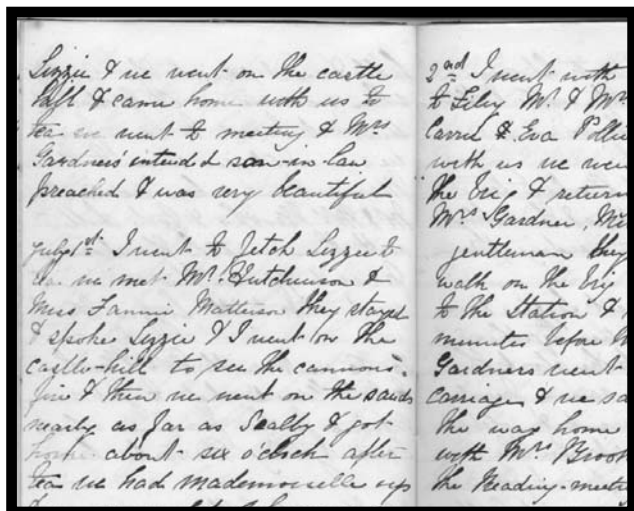 Lizzie & we went on the castle
hill & came home with us to
tea we went to meeting & Mrs
Gardners' intended son-in-law
preached & was very beautiful
July 1st I went to fetch Lizzie to
tea we met Mr. Hutchinson &
Miss Fannie Matterson they stayed
& spoke Lizzie & I went on the
castle-hill to see the cannons
fire & then we went on the sands
nearly as far as Scalby & got
home about six o'clock after
tea we had mademoiselle
2nd I went with
to Filey Mr. & Mrs
Carrie & Eva
with us we
the brig & return
Mrs Gardner,
gentleman they
walk on the brig
to the Station &
minutes before
Gardners went
carriage & we
the way home
with Mrs
the Reading-